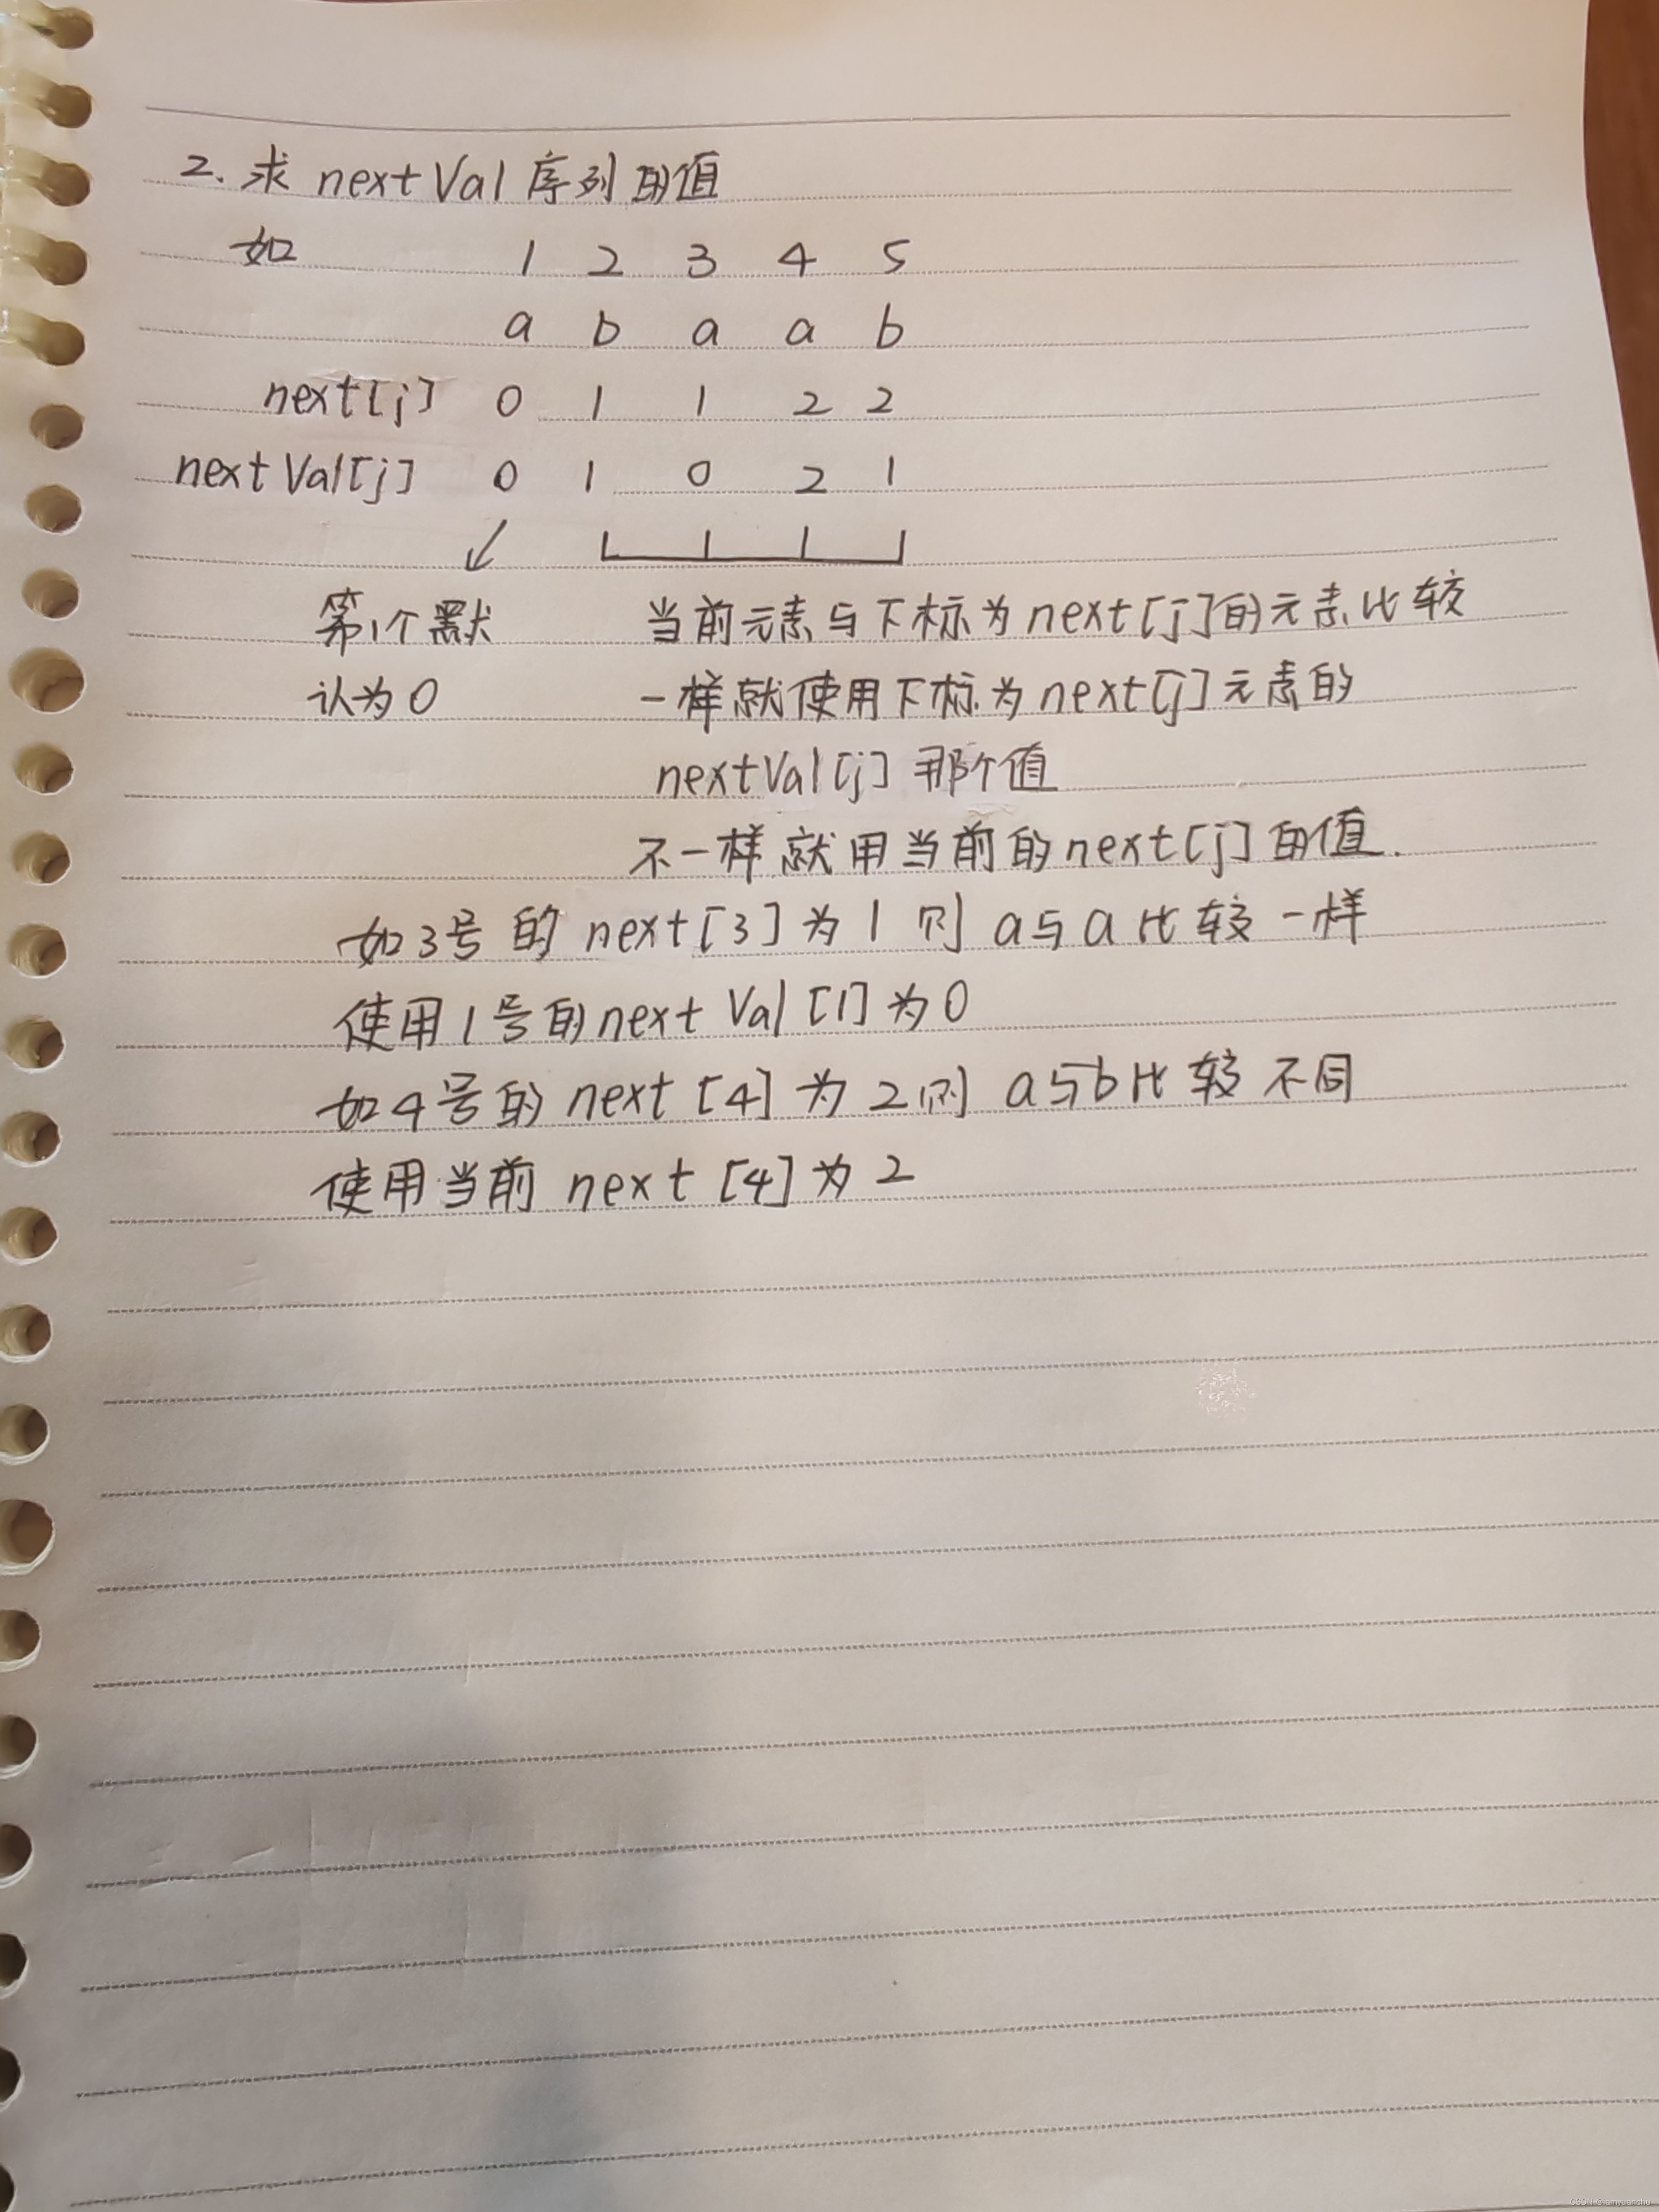 2. 求 nextVal 序列的值
如 1 2 3 4 5
a b a a b
next[j] 0 1 1 2 2
nextVal[j] 0 1 0 2 1
第1个默
认为0
当前元素与下标为next[j]的元素比较
一样就使用下标为next[j]元素的
nextVal[j] 那个值
不一样就用当前的next[j]的值.
如3号的 next[3]为1则 a与a比较一样
使用1号的nextVal[1]为0
如4号的 next[4]为2则 a与b比较不同
使用当前 next[4]为2